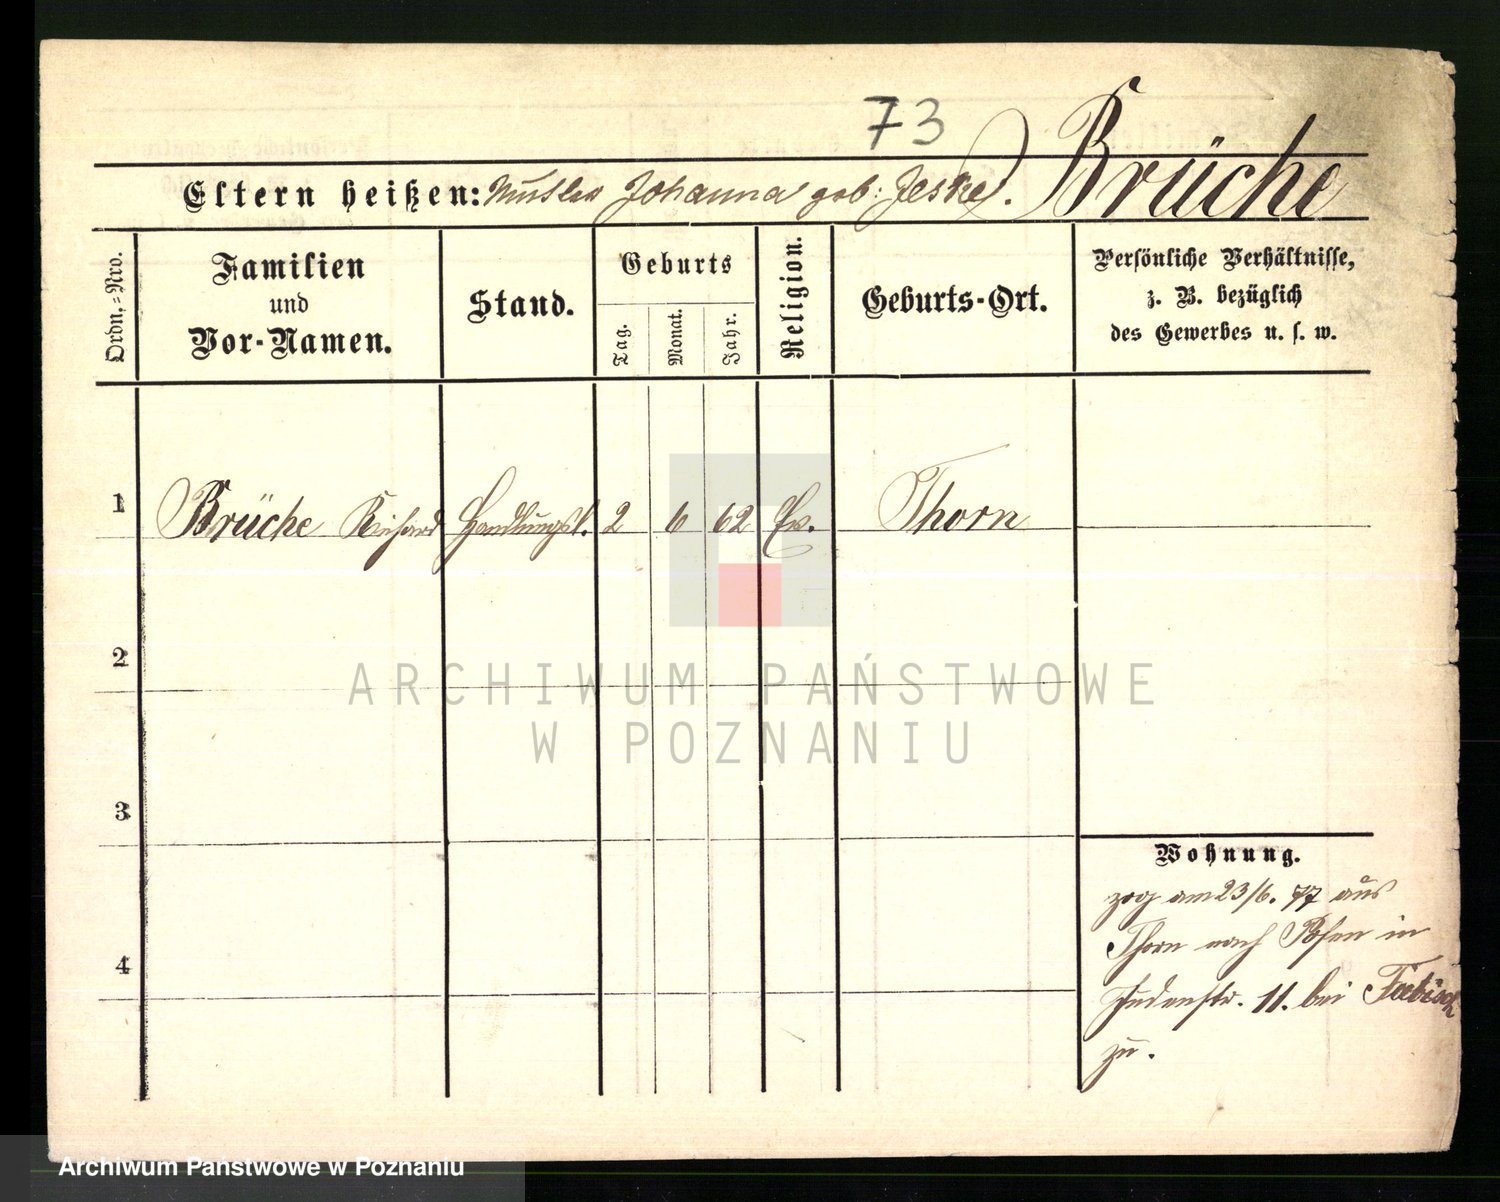 73
Brüche
Eltern heißen: Mutter Johanna geb: Jeske.
Ordn.-Nro.
Familien
und
Vor-Namen.
Stand.
Geburts
Tag.
Monat.
Jahr.
Religion.
Geburts-Ort.
Persönliche Verhältnisse,
z. B. bezüglich
des Gewerbes u. s. w.
1 Brüche Richard Handlungsl. 2 6 62 Ev. Thorn
2
3
4
Wohnung.
zog am 23/6. 77 aus
Thorn nach Posen in
Judenstr. 11. bei Fabisch
zu.
ARCHIWUM PAŃSTWOWE
W POZNANIU
Archiwum Państwowe w Poznaniu